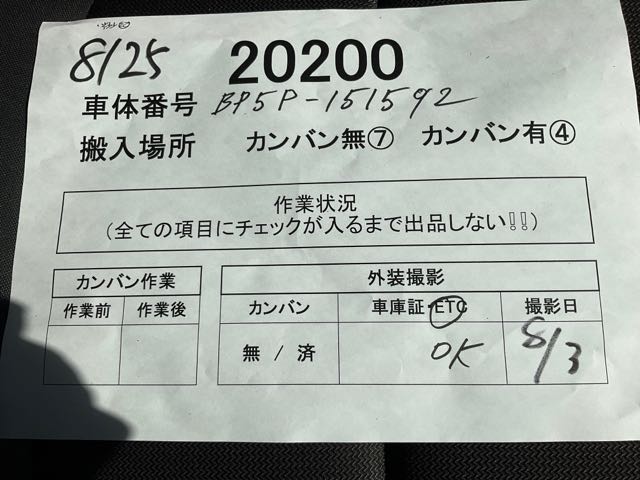 8/25 20200
車体番号 BP5P-151592
搬入場所 カンバン無⑦ カンバン有④
作業状況
(全ての項目にチェックが入るまで出品しない!!)
カンバン作業
作業前 作業後
外装撮影
カンバン 車庫証・ETC 撮影日
無 / 済 OK 8/3